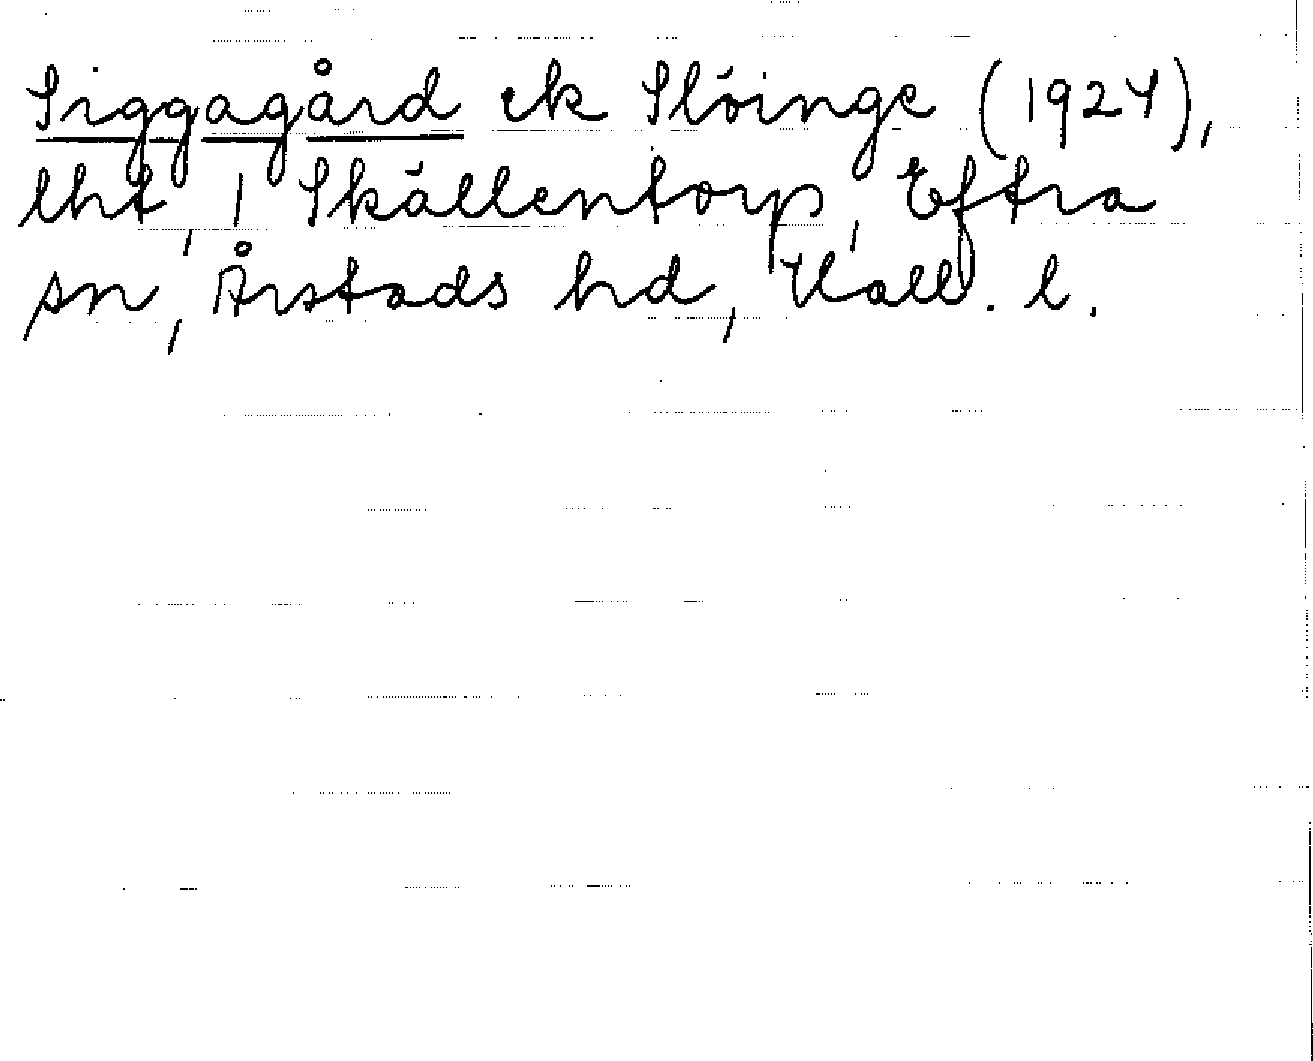 Siggagård ek Slöinge (1924),
lht, 1 Skällentorp, Eftra
sn, Årstads hd, Hall. l.